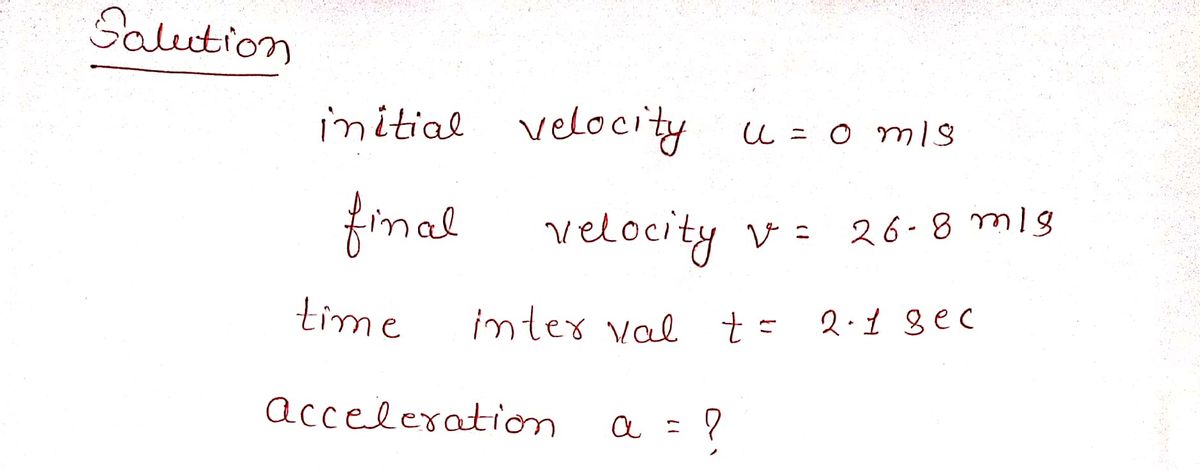 Salution
initial velocity u = 0 m/s
final velocity v = 26.8 m/s
time interval t = 2.1 sec
acceleration a = ?